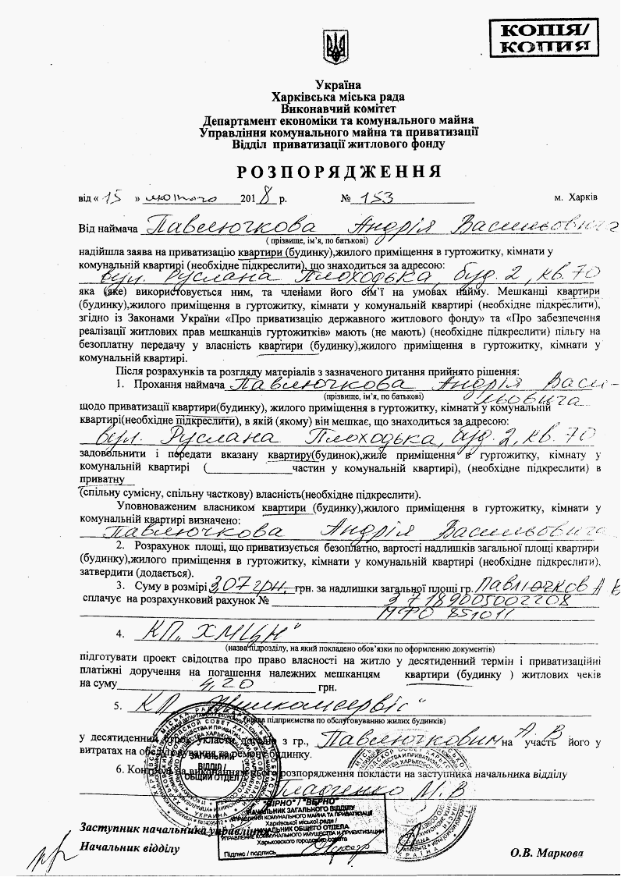 КОПІЯ/
КОПИЯ
Україна
Харківська міська рада
Виконавчий комітет
Департамент економіки та комунального майна
Управління комунального майна та приватизації
Відділ приватизації житлового фонду
РОЗПОРЯДЖЕННЯ
від «15» лютого 2018 р. № 153 м. Харків
Від наймача Павлючкова Андрія Васильовича
( прізвище, ім'я, по батькові)
надійшла заява на приватизацію квартири (будинку),жилого приміщення в гуртожитку, кімнати у
комунальній квартирі (необхідне підкреслити), що знаходиться за адресою:
вул. Руслана Плоходька, буд. 2, кв. 70
яка (яке) використовується ним, та членами його сім'ї на умовах найму. Мешканці квартири
(будинку),жилого приміщення в гуртожитку, кімнати у комунальній квартирі (необхідне підкреслити),
згідно із Законами України «Про приватизацію державного житлового фонду» та «Про забезпечення
реалізації житлових прав мешканців гуртожитків» мають (не мають) (необхідне підкреслити) пільгу на
безоплатну передачу у власність квартири (будинку),жилого приміщення в гуртожитку, кімнати у
комунальній квартирі.
Після розрахунків та розгляду матеріалів з зазначеного питання прийнято рішення:
1. Прохання наймача Павлючкова Андрія Васи-
льовича
(прізвище, ім'я, по батькові)
щодо приватизації квартири(будинку), жилого приміщення в гуртожитку, кімнати у комунальній
квартирі(необхідне підкреслити), в якій (якому) він мешкає, що знаходиться за адресою:
вул. Руслана Плоходька, буд. 2, кв. 70
задовольнити і передати вказану квартиру(будинок),жиле приміщення в гуртожитку, кімнату у
комунальній квартирі (____________частин у комунальній квартирі), (необхідне підкреслити) в
приватну
(спільну сумісну, спільну часткову) власність(необхідне підкреслити).
Уповноваженим власником квартири (будинку),жилого приміщення в гуртожитку, кімнати у
комунальній квартирі визначено:
Павлючкова Андрія Васильовича
2. Розрахунок площі, що приватизується безоплатно, вартості надлишків загальної площі квартири
(будинку),жилого приміщення в гуртожитку, кімнати у комунальній квартирі (необхідне підкреслити).
затвердити (додається).
3. Суму в розмірі 3,07 грн. грн. за надлишки загальної площі гр. Павлючков А В
сплачує на розрахунковий рахунок № 37189005002208
МФО 851011
4. КП „ХМЦН"
(назва підрозділу, на який покладено обов'язки по оформленню документів)
підготувати проект свідоцтва про право власності на житло у десятиденний термін і приватизаційні
платіжні доручення на погашення належних мешканцям квартири (будинку ) житлових чеків
на суму 4,20 грн.
5. КП „Жилкомсервіс"
(назва підприємства по обслуговуванню жилих будинків)
у десятиденний строк укласти договір з гр., Павлючковим А В на участь його у
витратах на обслуговування та ремонт будинку.
6. Контроль за виконанням цього розпорядження покласти на заступника начальника відділу
ЗАГАЛЬНИЙ
ВІДДІЛ /
ОБЩИЙ ОТДЕЛ
"ВІРНО" / "ВЕРНО"
НАЧАЛЬНИК ЗАГАЛЬНОГО ВІДДІЛУ
УПРАВЛІННЯ КОМУНАЛЬНОГО МАЙНА ТА ПРИВАТИЗАЦІЇ
Харківської міської ради /
НАЧАЛЬНИК ОБЩЕГО ОТДЕЛА
УПРАВЛЕНИЕ КОММУНАЛЬНОГО ИМУЩЕСТВА И ПРИВАТИЗАЦИИ
Харьковского городского совета
Підпис / подпись
Заступник начальника управління
Начальник відділу О.В. Маркова